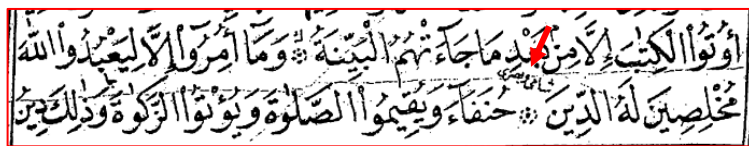 أُوتُوا۟ الْكِتَٰبَ إِلَّا مِنْ بَعْدِ مَا جَآءَتْهُمُ الْبَيِّنَةُ ۞ وَمَآ أُمِرُوٓا۟ إِلَّا لِيَعْبُدُوا۟ اللَّهَ
مُخْلِصِينَ لَهُ الدِّينَ ۞ حُنَفَآءَ وَيُقِيمُوا۟ الصَّلَوٰةَ وَيُؤْتُوا۟ الزَّكَوٰةَ وَذَٰلِكَ دِينُ